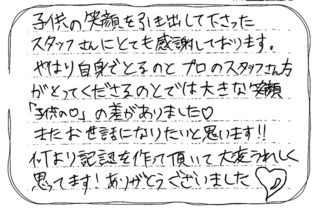 子供の笑顔を引き出して下さった
スタッフさんにとても感謝しております。
やはり自身でとるのと プロのスタッフさん方
がとってくださるのとでは大きな笑顔
「子供の♡」の差がありました♡
またお世話になりたいと思います!!
何より記念を作って頂いて大変うれしく
思ってます!ありがとうございました